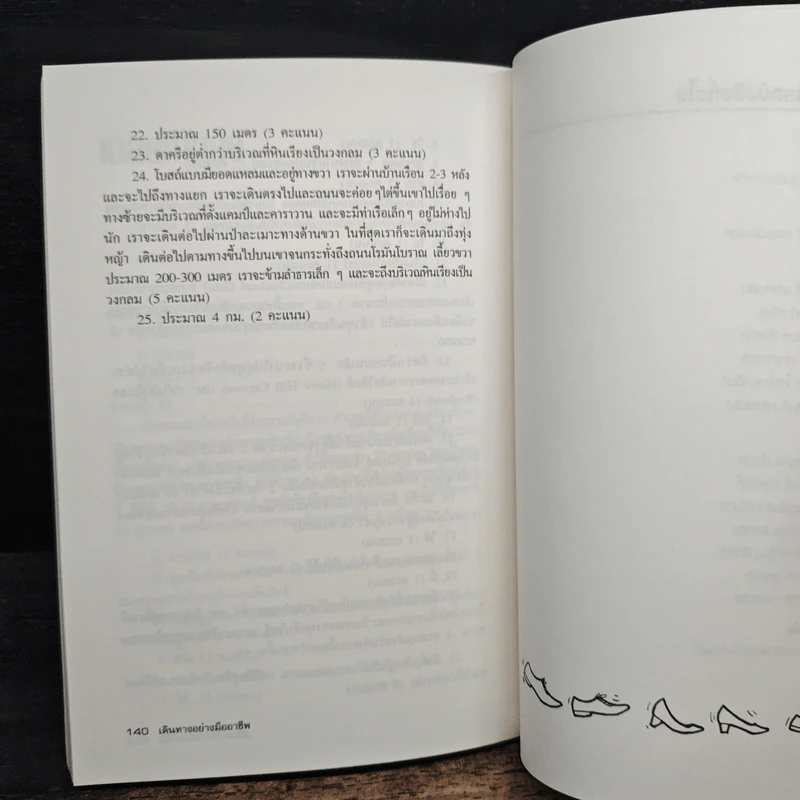 22. ประมาณ 150 เมตร (3 คะแนน)
23. ดาครีอยู่ต่ำกว่าบริเวณที่หินเรียงเป็นวงกลม (3 คะแนน)
24. โบสถ์แบบมียอดแหลมและอยู่ทางขวา เราจะผ่านบ้านเรือน 2-3 หลัง
และจะไปถึงทางแยก เราจะเดินตรงไปและถนนจะค่อย ๆ ไต่ขึ้นเขาไปเรื่อย ๆ
ทางซ้ายจะมีบริเวณที่ตั้งแคมป์และคาราวาน และจะมีท่าเรือเล็ก ๆ อยู่ไม่ห่างไป
นัก เราจะเดินต่อไปผ่านป่าละเมาะทางด้านขวา ในที่สุดเราก็จะเดินมาถึงทุ่ง
หญ้า เดินต่อไปตามทางขึ้นไปบนเขาจนกระทั่งถึงถนนโรมันโบราณ เลี้ยวขวา
ประมาณ 200-300 เมตร เราจะข้ามลำธารเล็ก ๆ และจะถึงบริเวณหินเรียงเป็น
วงกลม (5 คะแนน)
25. ประมาณ 4 กม. (2 คะแนน)
140 เดินทางอย่างมืออาชีพ